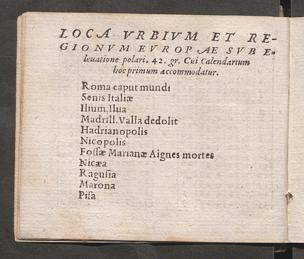 LOCA VRBIVM ET RE-
GIONVM EVROPAE SVB E-
leuatione polari. 42. gr. Cui Calendarium
hoc primum accommodatur.
Roma caput mundi
Senis Italiæ
Ilium. Ilua
Madrill. Valla dedolit
Hadrianopolis
Nicopolis
Fossæ Marianæ Aignes mortes
Nicæa
Ragusia
Marona
Pisa